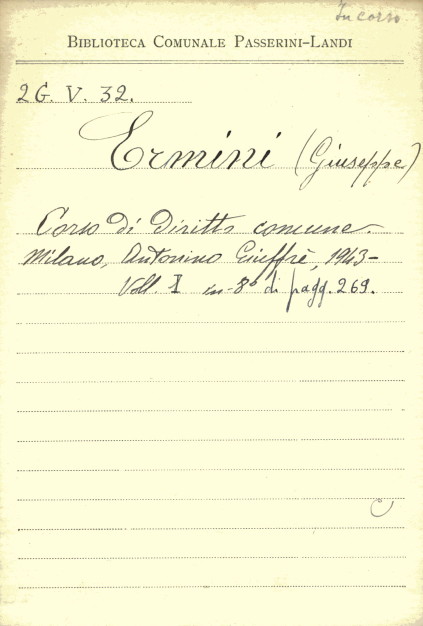 In corso
BIBLIOTECA COMUNALE PASSERINI-LANDI
2G. V. 32.
Ermini (Giuseppe)
Corso di diritto comune.
Milano, Antonino Giuffrè, 1943-
Voll. I in-8° di pagg. 269.
C